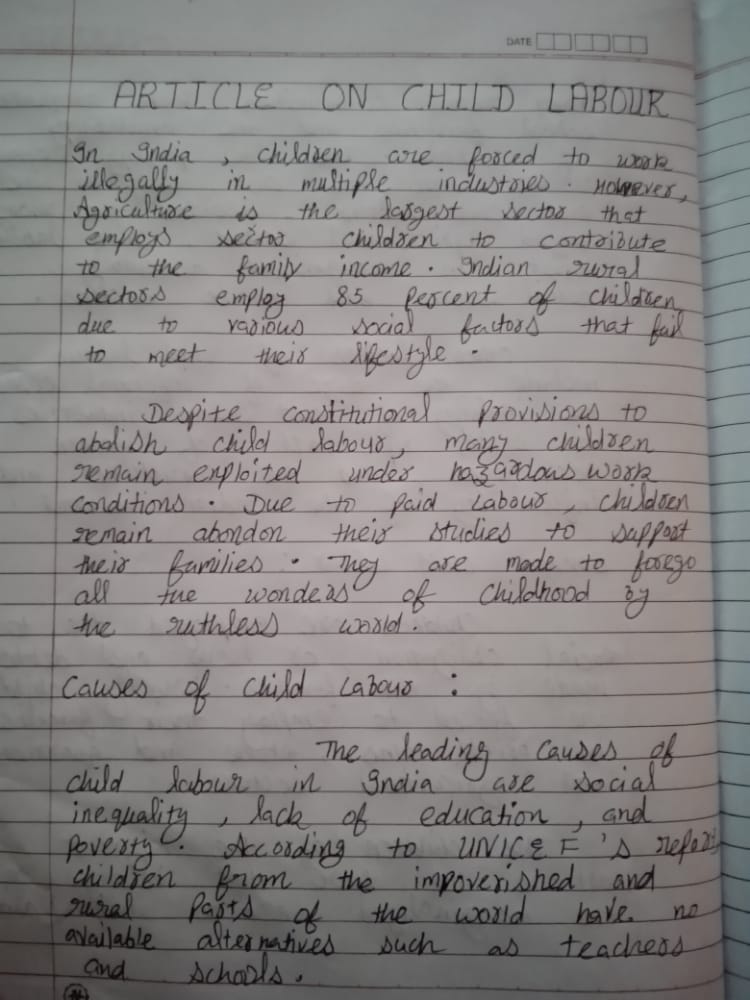 DATE
ARTICLE ON CHILD LABOUR
In India , children are forced to work
illegally in multiple industries . However,
Agriculture is the largest sector that
employs sector children to contribute
to the family income . Indian rural
sectors employ 85 percent of children
due to various social factors that fail
to meet their lifestyle .
Despite constitutional provisions to
abolish child labour, many children
remain exploited under hazardous work
conditions . Due to paid labour, children
remain abondon their studies to support
their families . They are made to forego
all the wonders of childhood by
the ruthless world .
Causes of Child Labour :
The leading causes of
child labour in India are social
inequality , lack of education , and
poverty . According to UNICEF 's report
children from the impoverished and
rural parts of the world have no
available alternatives such as teachers
and schools .